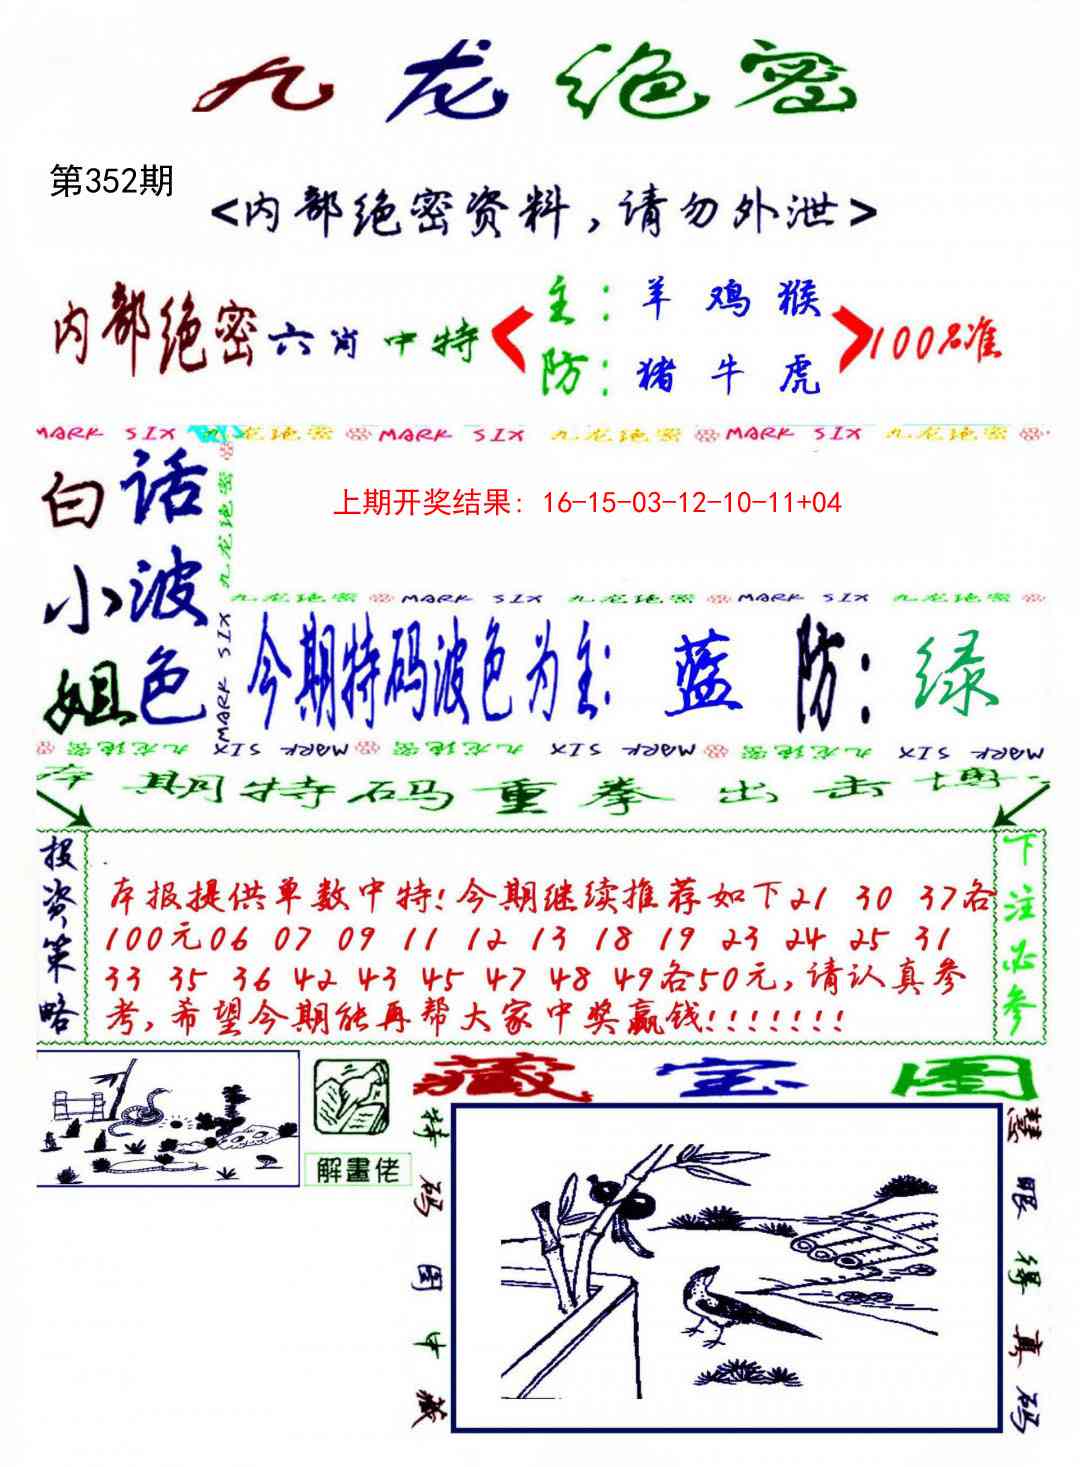 九龙绝密
第352期
<内部绝密资料,请勿外泄>
内部绝密六肖中特
主:羊鸡猴
防:猪牛虎
100%准
MARK SIX 九龙绝密 MARK SIX 九龙绝密 MARK SIX 九龙绝密
白小姐
话波色
九龙绝密
MARK SIX
MARK SIX
上期开奖结果:16-15-03-12-10-11+04
九龙绝密 MARK SIX 九龙绝密 MARK SIX 九龙绝密
今期特码波色为主:蓝 防:绿
九龙绝密 MARK SIX 九龙绝密 MARK SIX 九龙绝密 MARK SIX
本期特码重拳出击博
投资策略
本报提供单数中特!今期继续推荐如下21 30 37各
100元06 07 09 11 12 13 18 19 23 24 25 31
33 35 36 42 43 45 47 48 49各50元,请认真参
考,希望今期能再帮大家中奖赢钱!!!!!!!
下注必参
解畫佬
藏宝图
特码图中藏
慧眼得真码